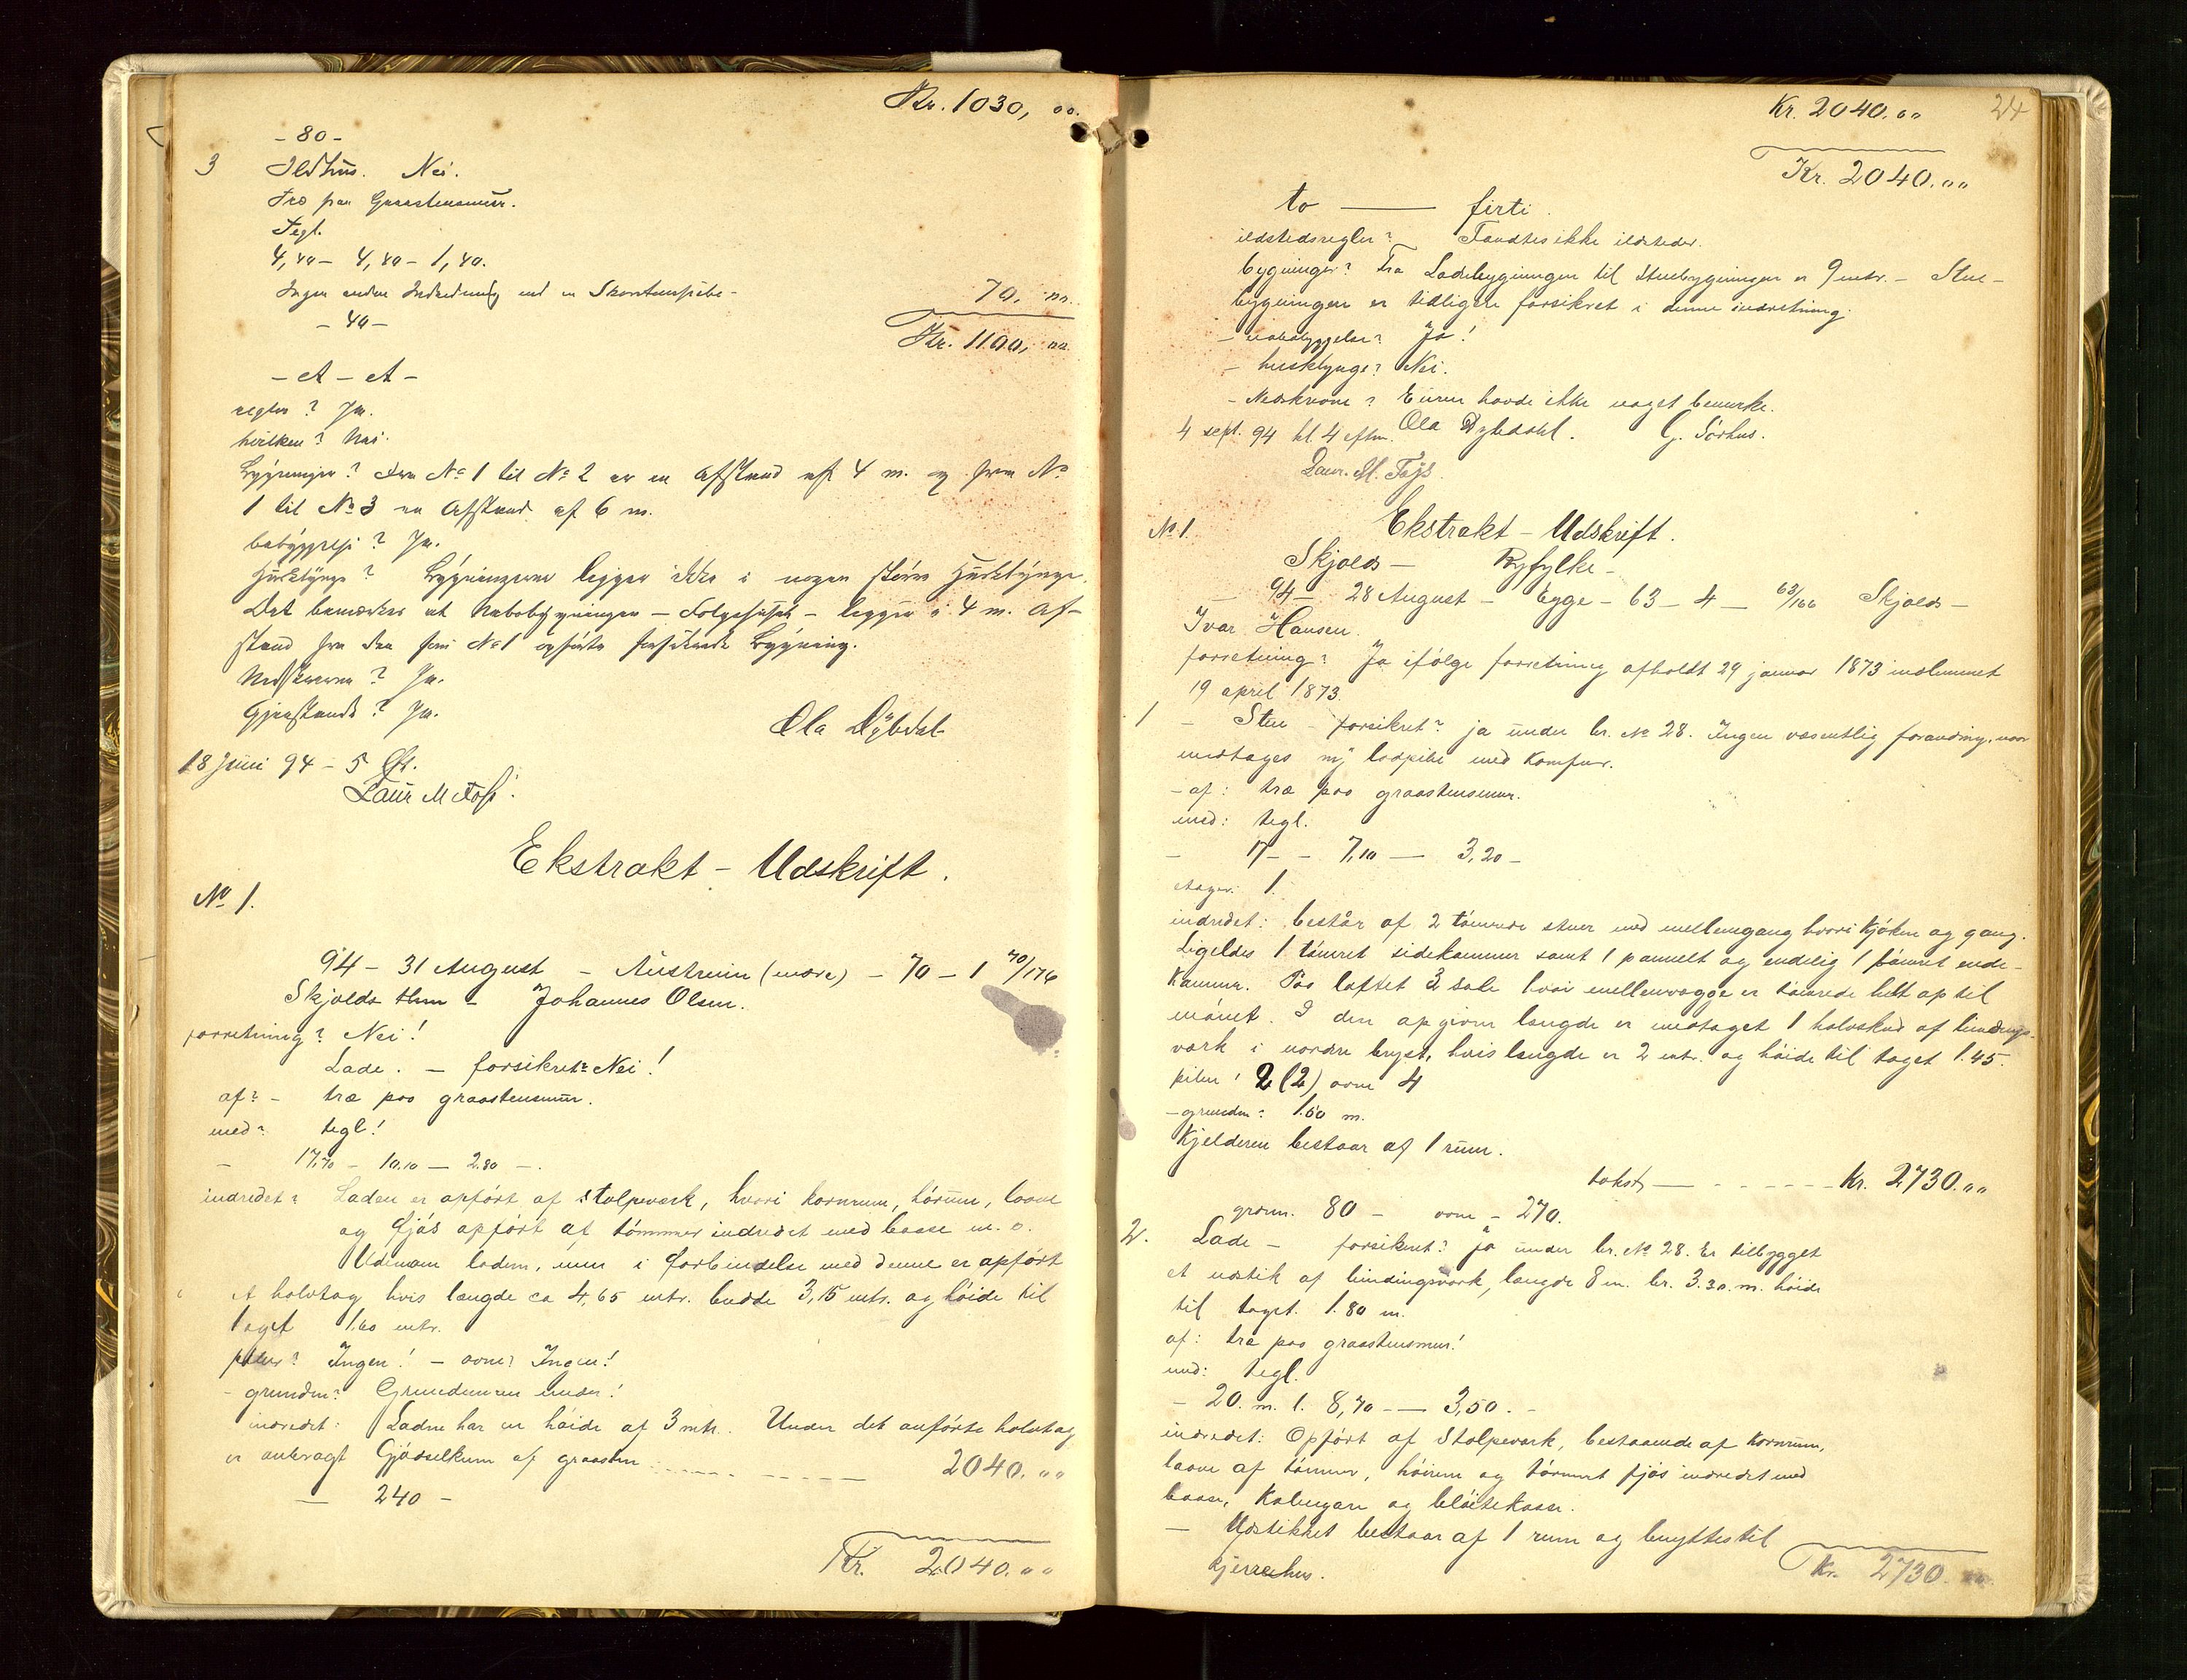 Kr. 1030, 00.
- 80 -
3 Ildhus. Nei.
Træ paa Graastensmur.
Tegl.
4,40 - 4,40 - 1,40.
Ingen anden Indredning end en Skorstenspibe - 70, 00.
- 40 -
Kr. 1100, 00
- et - et -
regler? Ja.
hvilken? Nei.
bygninger? Fra No 1 til No 2 er en Afstand af 4 m. og fra No
1 til No 3 en Afstand af 6 m.
bebyggelse? Ja.
Husklynge? Bygningerne ligger ikke i nogen større Husklynge.
Det bemærkes at Nabobygningen - Folgehuset - ligger i 4 m. Af-
stand fra den som No 1 opførte forsikrede Bygning.
Nedskrevne? Ja.
Gjenstande? Ja.
Ola Dybdal
18 Juni 94 - 5 Et.
Laur M
Ekstrakt - Udskrift.
No 1.
94 - 31 August - Austreim (nedre) - 70 - 1 70/176
Skjolds thm - Johannes Olsen.
forretning? Nei!
Lade. - forsikret? Nei!
af? - træ paa graastensmur.
med? tegl!
- 17,70 - 10.10 - 2.80 -.
indredet? Laden er opført af stolpeverk, hvori kornrum, hørum, loove
og fjøs opført af tømmer indredet med baase m. v.
Udenom laden, men i forbindelse med denne er opført
et halvtag hvis længde ca 4,65 mtr. bredde 3,15 mtr. og høide til
taget 1.60 mtr.
piber? Ingen! - ovne? Ingen!
- grunden? Grundmuren under!
indredet: Laden har en høide af 3 mtr. Under det anførte halvtag
er anbragt Gjødselkum af graasten 2040. 00
- 240 -
Kr. 2040. 00
Kr. 2040. 00 24
Kr. 2040. 00
to - firti.
ildstedsregler? Fandtes ikke ildsteder.
bygninger? Fra Ladebygningen til Stuebygningen er 9 mtr. - Stue-
bygningen er tidligere forsikret i denne indretning.
- nabobyggelse? Ja!
- husklynge? Nei.
- Nedskrevne? Eieren havde ikke noget bemerke.
4 sept. 94 kl. 4 eftm. Ola Dybdahl. G. Sørhus.
Laur. M.
No 1. Ekstrakt - Udskrift.
Skjolds - Ryfylke -
- 94 - 28 August - Egge - 63 - 4 - 63/166 Skjolds -
Ivar Hansen.
forretning? Ja ifølge forretning afholdt 29 januar 1873 indlemmet
19 april 1873.
1 - Stue - forsikret? ja under br. No 28. Ingen væsentlig forandring, naar
undtages ny pibe med komfur.
- af: træ paa graastensmur.
med: tegl.
- 17 - - 7,10 - 3,20 -
etager: 1.
indredet: består af 2 tømrede stuer med mellemgang hvori kjøken og gang.
Ligeledes 1 tømret sidekammer samt 1 panelt og endelig 1 tømret ende-
kammer. Paa loftet 3 sale hvoi mellemvægge er tømrede helt op til
mønet. I den opgivne længde er medtaget 1 halvskud af bindings-
værk i nordre bryst, hvis længde er 2 mtr. og høide til taget 1.45.
piber! 2 (2) ovne 4
- grunden? 1.60 m.
Kjelderen bestaar af 1 rum.
takst - - - - - - Kr. 2730. 00
grunn. 80 - ovne - 270.
2. Lade - forsikret? ja under br. No 28. Er tilbygget
et udstik af bindingsværk, længde 8 m. br. 3.30. m. høide
til taget. 1.80 m.
af: træ paa graastensmur!
med: tegl.
- 20. m. l. 8,70 - - 3,50. -
indredet: Opført af Stolpeverk, bestaaende af Kornrum,
laave af tømmer, hørum og tømret fjøs indredet med
baase, kalvegare og bløitekasse.
- Udstikket bestaar af 1 rum og benyttes til
kjerrehus. Kr. 2730.